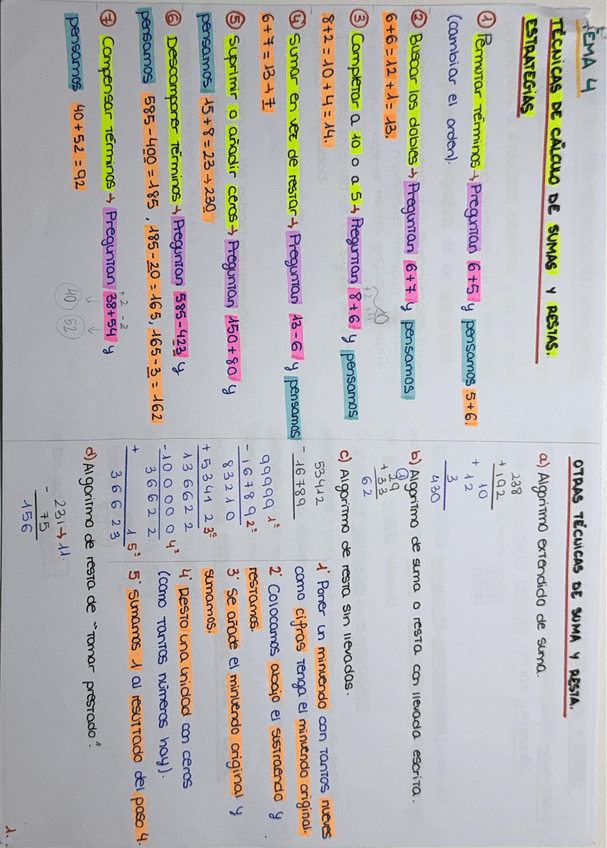 TEMA 4
TÉCNICAS DE CÁLCULO DE SUMAS Y RESTAS.
ESTRATEGIAS
① Permutar términos → Preguntan 6+5 y pensamos 5+6.
(cambiar el orden).
② Buscar los dobles → Preguntan 6+7 y pensamos
6+6=12+1=13.
③ Completar a 10 o a 5 → Preguntan 8+6 y pensamos
8+2=10+4=14.
10
④ Sumar en vez de restar → Preguntan 13-6 y pensamos
6+7=13→7
⑤ Suprimir o añadir ceros → Preguntan 150+80 y
pensamos 15+8=23→230
⑥ Descomponer términos → Preguntan 585-423 y
pensamos 585-400=185, 185-20=165, 165-3=162
⑦ Compensar términos → Preguntan 38+54 y
pensamos 40+52=92
+2 -2
40 52
OTRAS TÉCNICAS DE SUMA Y RESTA.
a) Algoritmo extendido de suma.
238
+ 192
10
+ 12
3
430
b) Algoritmo de suma o resta con llevada escrita.
①
29
+ 33
62
c) Algoritmo de resta sin llevadas.
53412
- 16789
99999 1º
- 16789 2º
83210
+ 53412 3º
136622
- 100000 4º
36622
+ 1 5º
36623
1º Poner un minuendo con tantos nueves
como cifras tenga el minuendo original.
2º Colocamos abajo el sustraendo y
restamos.
3º Se añade el minuendo original y
sumamos.
4º Resto una unidad con ceros
(como tantos números hay).
5º Sumamos 1 al resultado del paso 4.
d) Algoritmo de resta de "tomar prestado".
231→11
- 75
156
1.